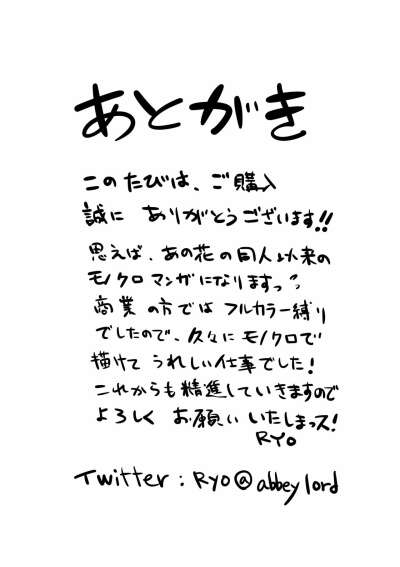 あとがき
このたびは、ご購入
誠に ありがとうございます!!
思えば、あの花の同人以来の
モノクロマンガになりますっ?
商業の方ではフルカラー縛り
でしたので、久々にモノクロで
描けて うれしい仕事でした!
これからも精進していきますので
よろしく お願い いたしまっス!
RYO
Twitter : RYO@abbeylord